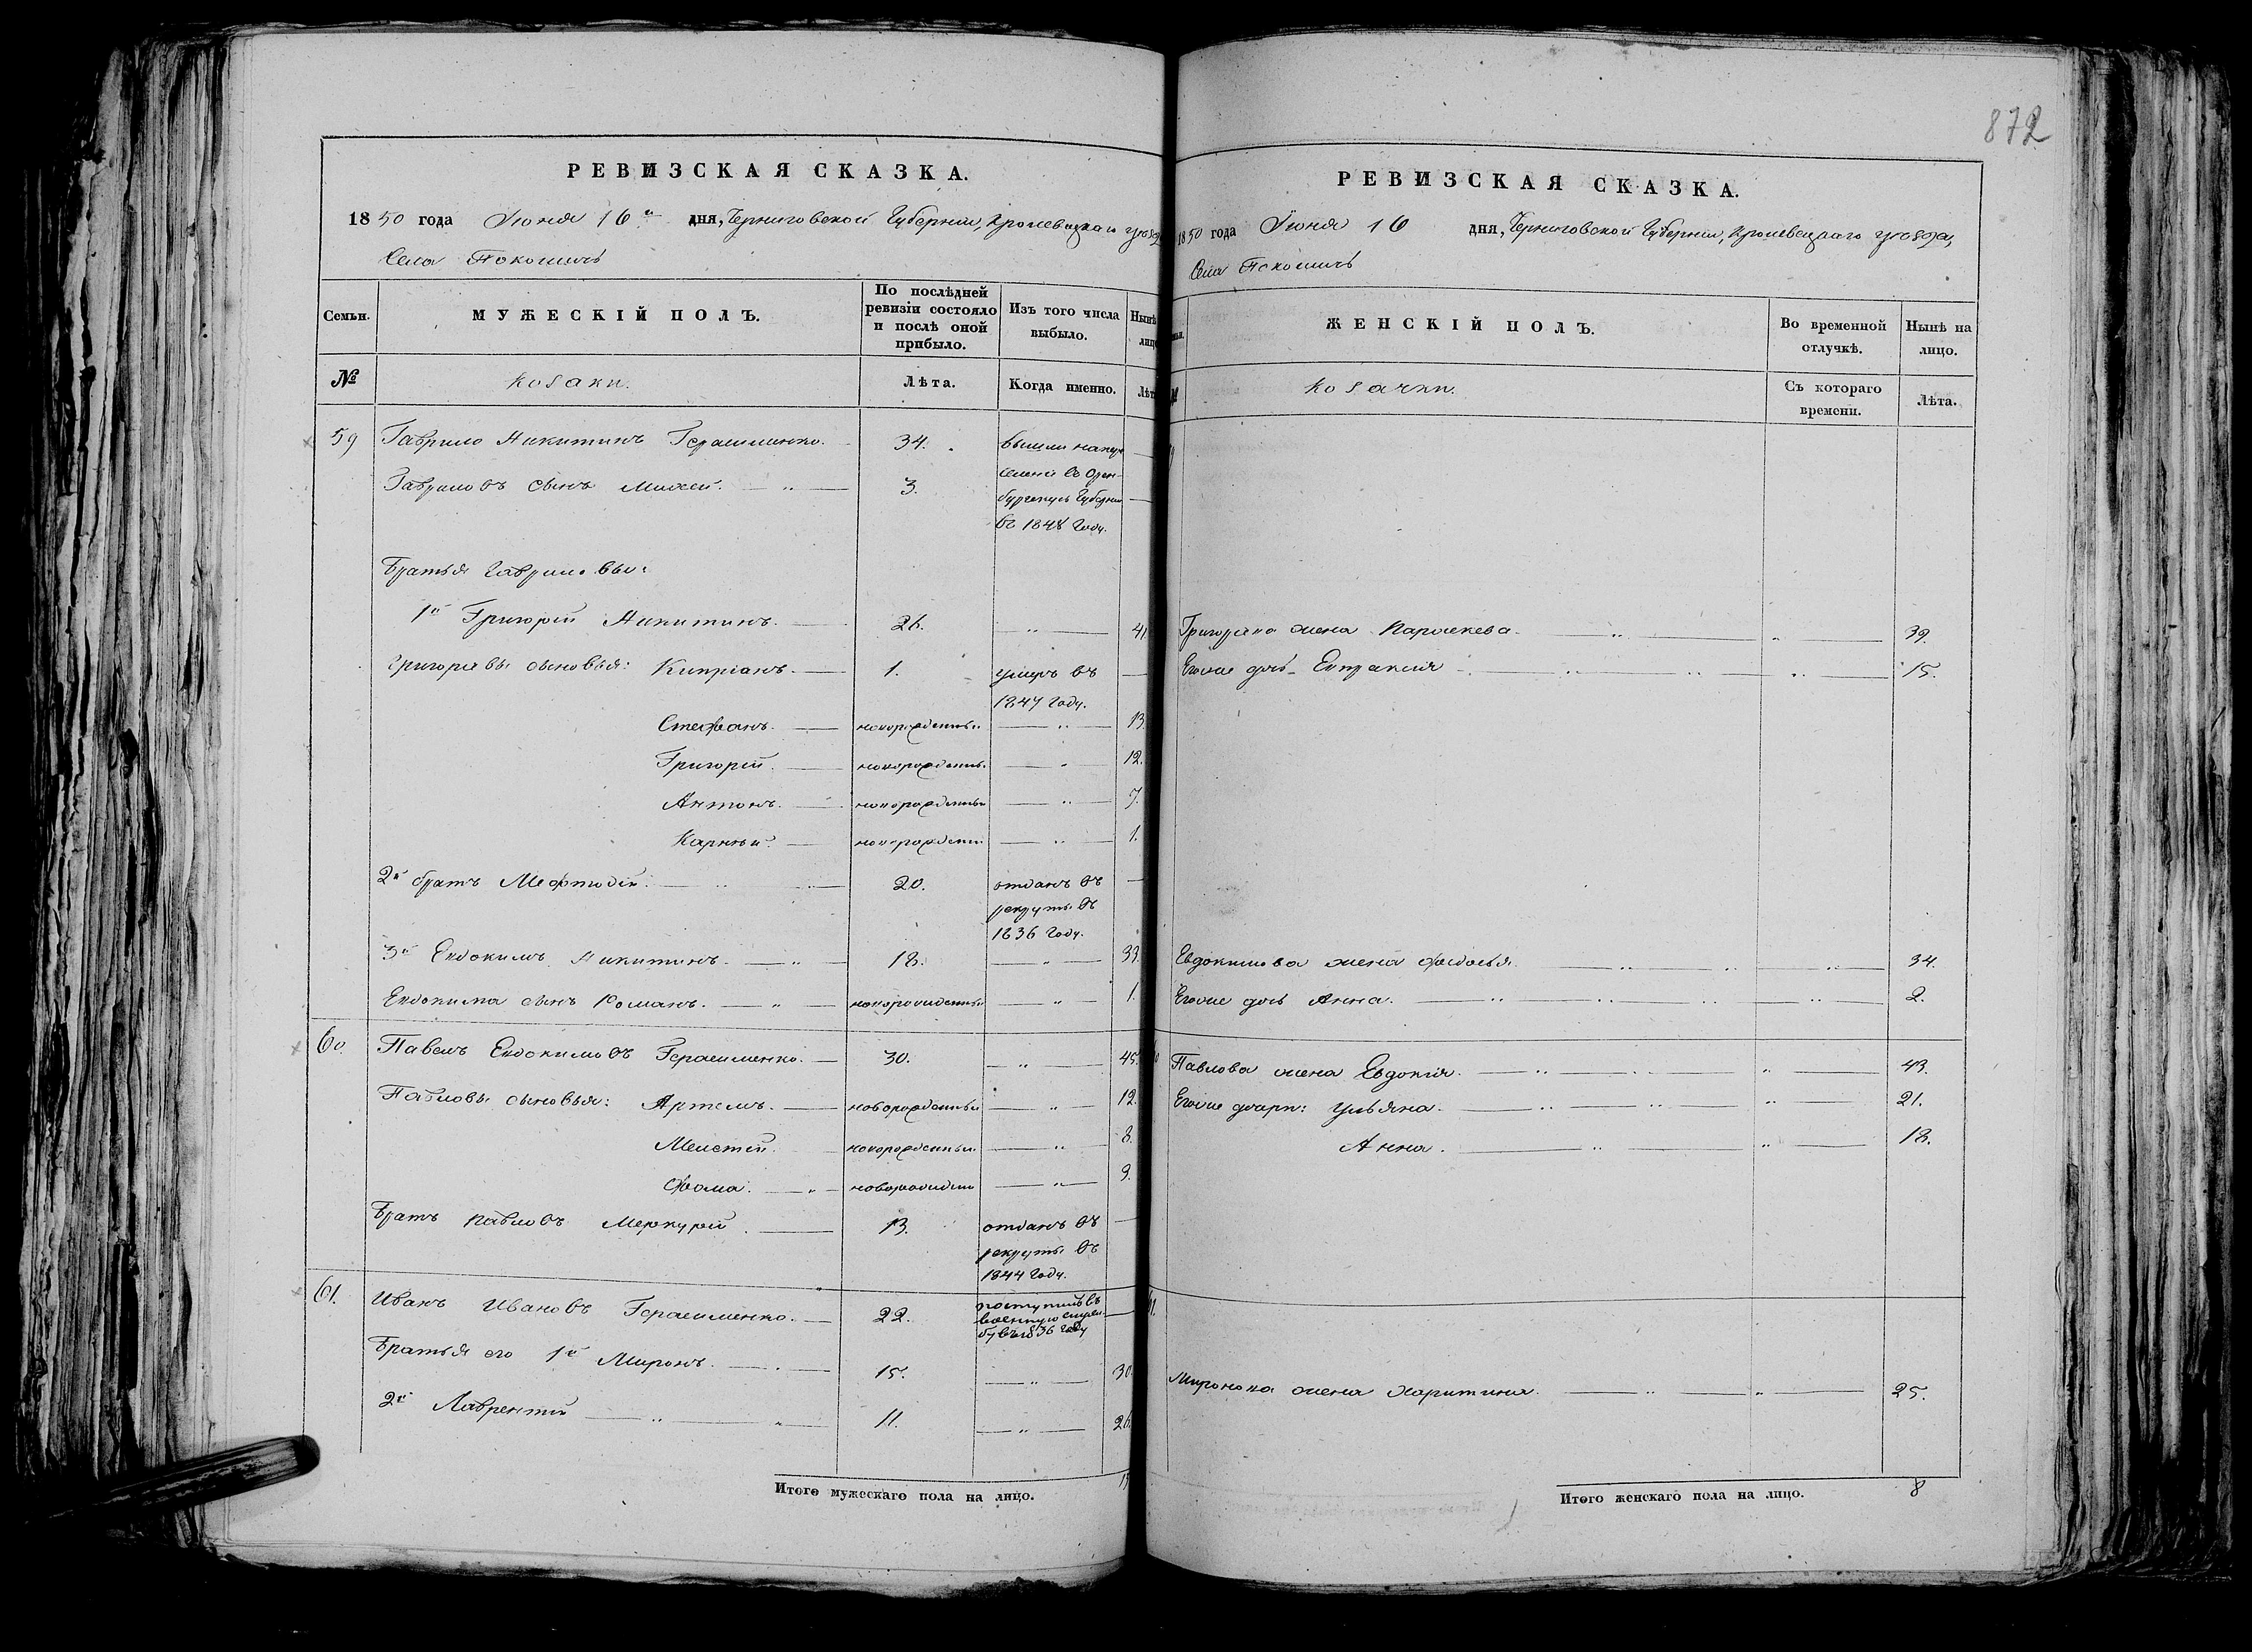 872
РЕВИЗСКАЯ СКАЗКА.
1850 года Іюня 16го дня, Черниговской Губерніи, Кролевецкаго уѣзда
Села Покошичъ
Семьи. МУЖЕСКІЙ ПОЛЪ. По послѣдней ревизіи состояло и послѣ оной прибыло. Изъ того числа выбыло. Нынѣ лицо
№ Козаки. Лѣта. Когда именно. Лѣт
59 Гаврило Никитинъ Герасименко. 34. вышли на пере
Гавриловъ сынъ Михей. 3. селеніе въ Орен-
бургскую Губернію
въ 1848 году.
Братья Гавриловы:
1й Григорій Никитинъ. 26. 41.
Григорьевы сыновья: Кипріанъ. 1. умеръ въ
1847 году.
Стефанъ. новорожденный 13.
Григорій. новорожденный 12.
Антонъ. новорожденный 7.
Карнѣй. новорожденный 1.
2й братъ Мефтодій. 20. отданъ въ
рекруты въ
1836 году.
3й Евдокимъ Никитинъ. 18. 33.
Евдокима сынъ Романъ. новорожденный 1.
60. Павелъ Евдокимовъ Герасименко. 30. 45.
Павловы сыновья: Артемъ. новорожденный 12.
новорожденный 8.
Фома. новорожденный 3.
Братъ Павловъ Меркурій. 13. отданъ въ
рекруты въ
1844 году.
61. Иванъ Ивановъ Герасименко. 22. поступилъ въ
военную служ-
бу въ 1836 году
Братья его 1й Миронъ. 15. 30.
2й Лаврентій 11. 26.
Итого мужескаго пола на лицо.
РЕВИЗСКАЯ СКАЗКА.
1850 года Іюня 16 дня, Черниговской Губерніи, Кролевецкаго уѣзда,
Села Покошичъ
ЖЕНСКІЙ ПОЛЪ. Во временной отлучкѣ. Нынѣ на лицо.
Козачки. Съ котораго времени. Лѣта.
Григорієва жена Параскева. 39.
Егоже дочь Евпраксія 15.
Евдокимова жена Федосья 34.
Егоже дочь Анна. 2.
Павлова жена Евдокія. 43.
Егоже дочери: Ульяна. 21.
Анна. 18.
Миронова жена Харитина. 25.
Итого женскаго пола на лицо. 8